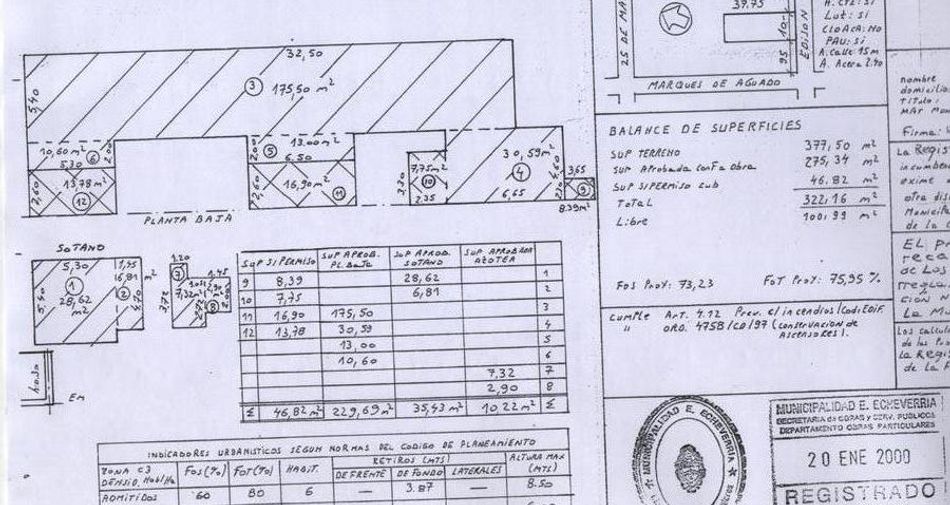 32,50
③ 175,50 m²
5,40
10,60 m² ⑥
5,30
2,00
13,78 m²
⑫
2,60
⑤ 13.00 m²
6,50
2,00
16,90 m²
⑪
2,60
7,75 m²
⑩
3,30
2.35
30,59 m²
④
6,65
3,65
⑨
8.39 m²
PLANTA BAJA
SOTANO
5,30
①
28,62 m²
5,40
1,45
6,81 m²
②
4,70
1.20
⑦
7,32 m²
3,72
1,45
⑧
2.00
SUP S/PERMISO SUP APROB. PL. BAJA SUP APROB. SOTANO SUP APROBADA AZOTEA
9 8,39 28,62 1
10 7,75 6,81 2
11 16,90 175,50 3
12 13,78 30,59 4
13,00 5
10,60 6
7,32 7
2,90 8
Σ 46,82 m² 229,69 m² 35,43 m² 10,22 m² Σ
INDICADORES URBANISTICOS SEGUN NORMAS DEL CODIGO DE PLANEAMIENTO
ZONA C3 DENSID. Hab/Ha FOS (%) FOT (%) HABIT. RETIROS (MTS) DE FRENTE DE FONDO LATERALES ALTURA MAX (MTS)
ADMITIDOS 60 80 6 — 3.87 — 8.50
37.75
10-
25 DE MA
EDISON
95
MARQUES DE AGUADO
Lut: SI
CLOACA: NO
PAU: SI
A. Calle 15 m
A. Acera 2.40
BALANCE DE SUPERFICIES
SUP TERRENO 377,50 m²
SUP Aprobada conf a obra 275,34 m²
SUP S/PERMISO sub 46.82 m²
TOTAL 322,16 m²
Libre 100,99 m²
FOS PROY: 73,23 FOT PROY: 75,95 %
CUMPLE ART. 4.12 Prev. c/incendios (Cod. Edif.
" ORD. 4758/CD/97 (Conservacion de
Ascensores).
nombre
domicilio
Titulo:
Firma:
La Regis
incumben
exime
otra dis
Municipa
de la
EL P
reca
de Los
La M
Los calcul
la Regis
de la
MUNICIPALIDAD E. ECHEVERRIA
MUNICIPALIDAD E. ECHEVERRIA
SECRETARIA de OBRAS y SERV. PUBLICOS
DEPARTAMENTO OBRAS PARTICULARES
20 ENE 2000
REGISTRADO